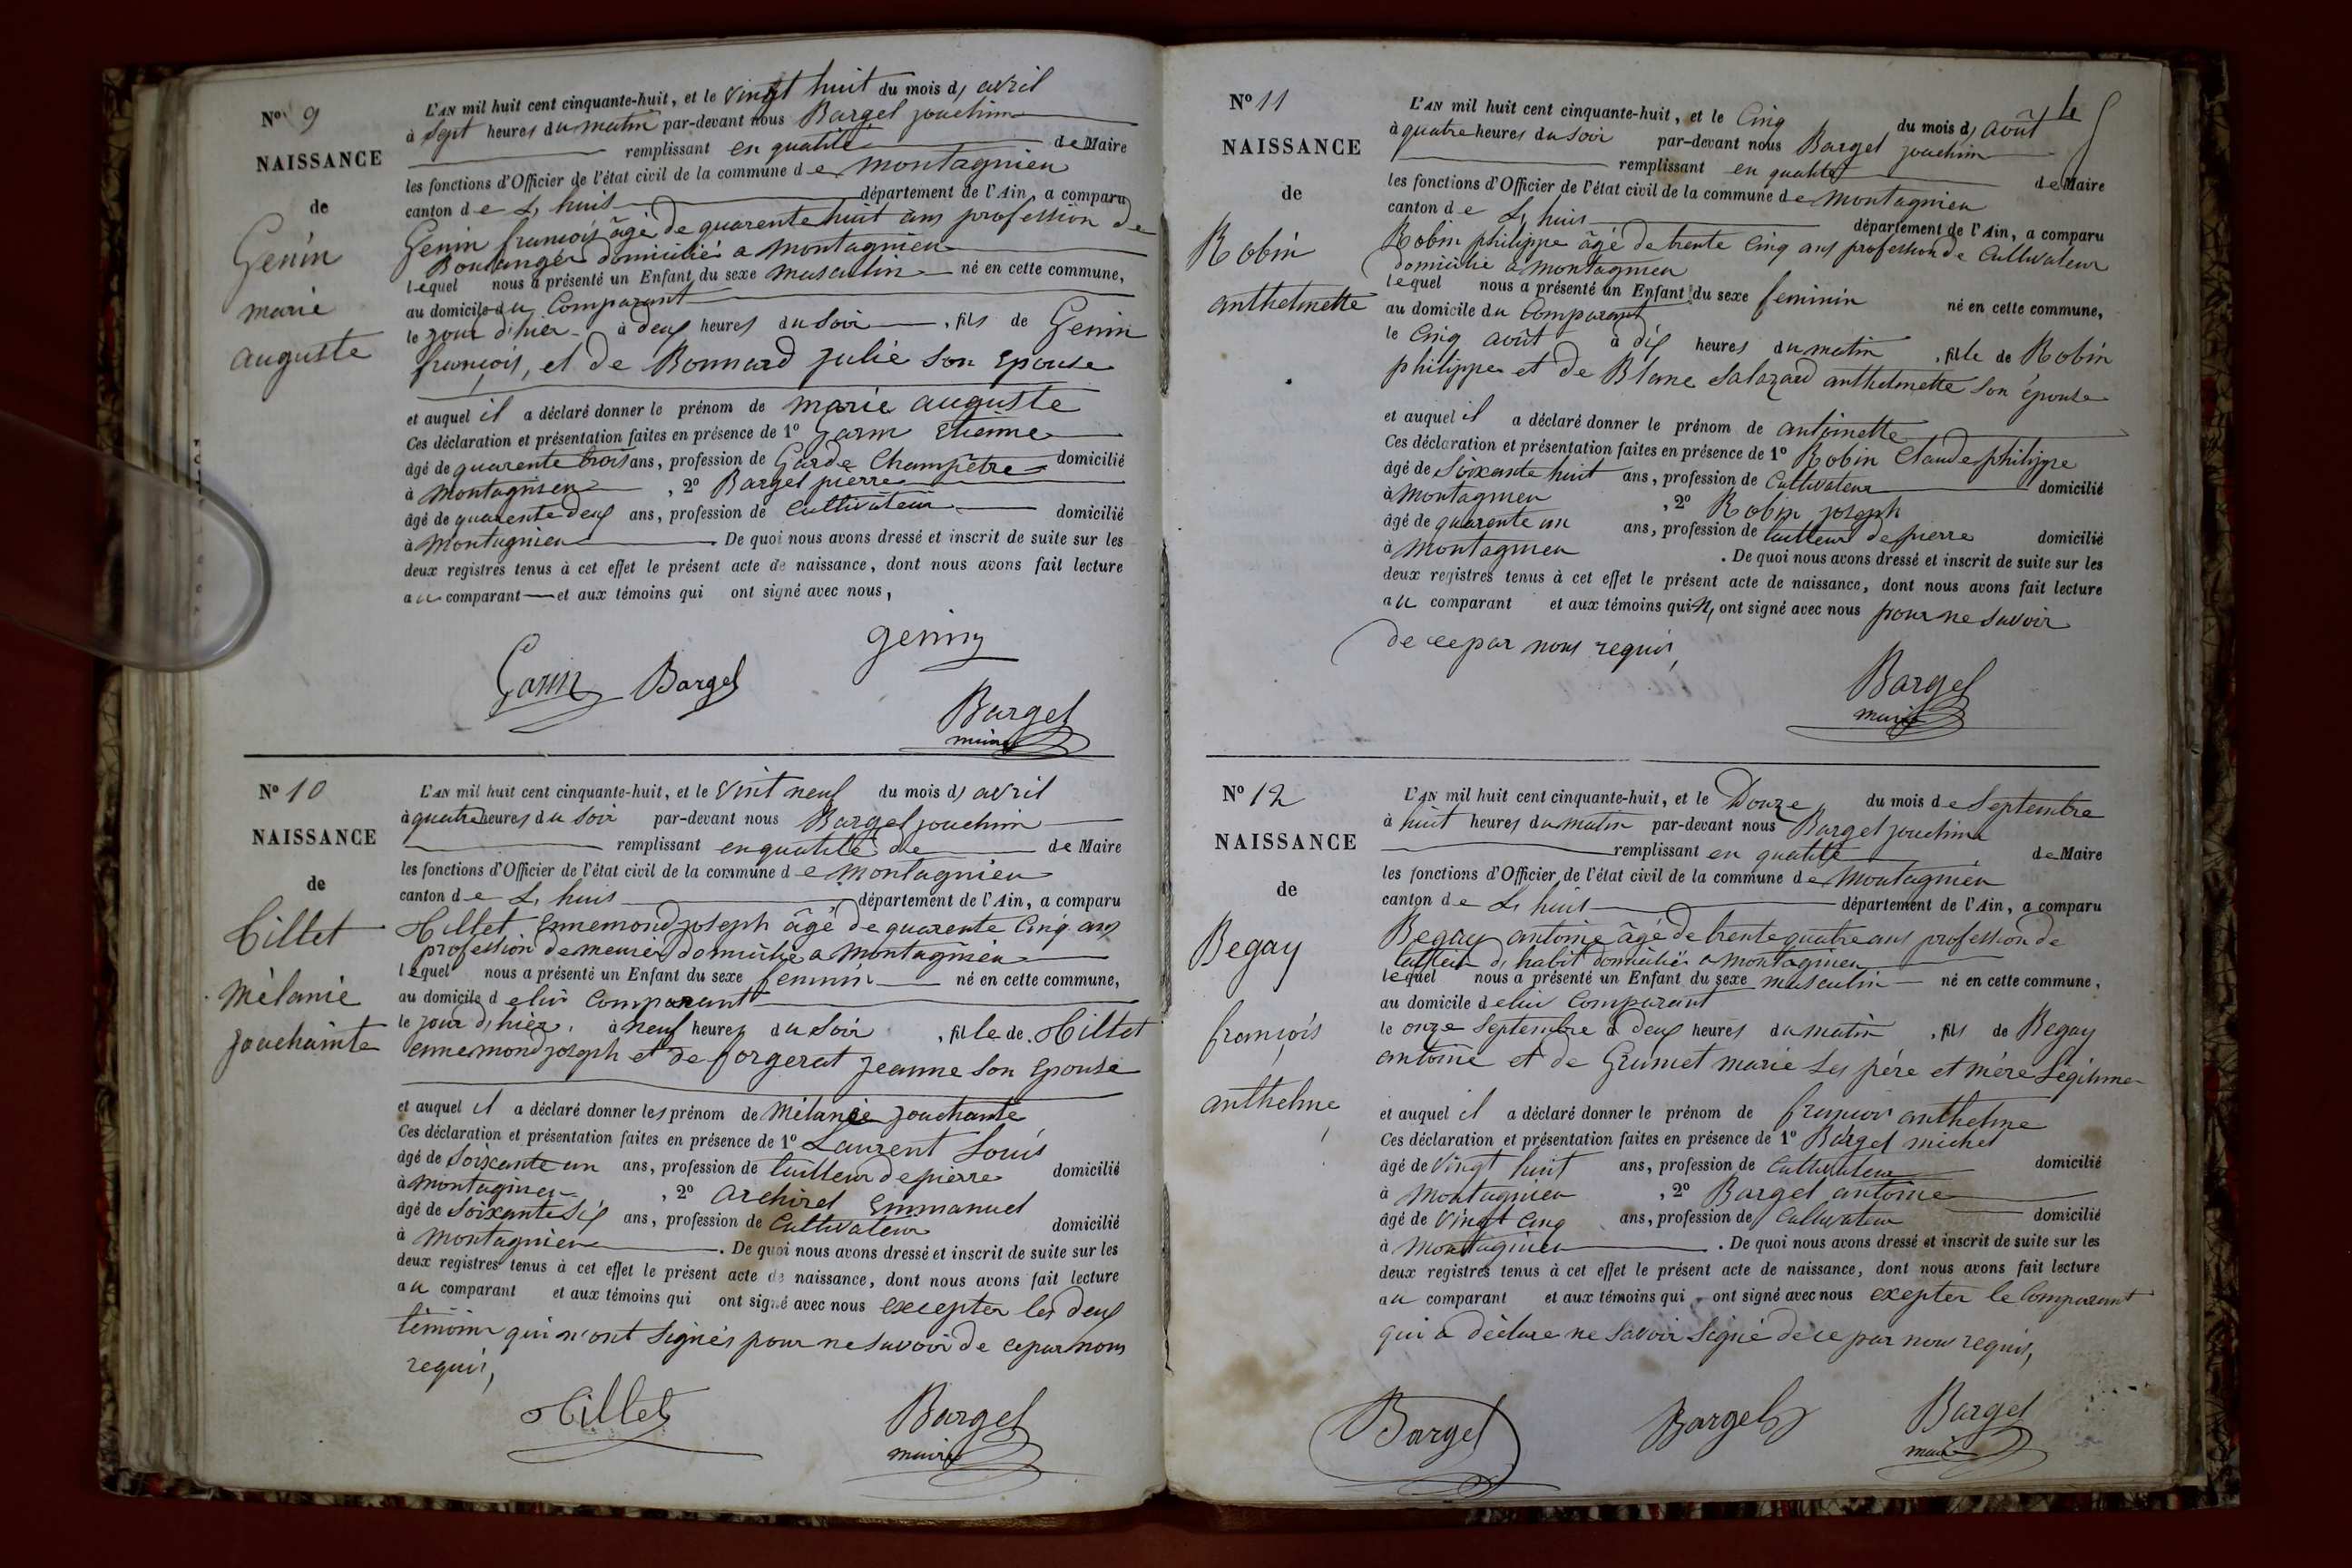 N° 9
NAISSANCE
de
Genin
marie
auguste
L'AN mil huit cent cinquante-huit, et le vingt huit du mois d, avril
à Sept heures du matin par-devant nous Bargel jouchim
remplissant en qualité de Maire
les fonctions d'Officier de l'état civil de la commune de montagnieu
canton de L, huis département de l'Ain, a comparu
Genin francois âgé de quarente huit ans profession de
Boulanger domicilié a montagnieu
lequel nous a présenté un Enfant du sexe masculin né en cette commune,
au domicile du Comparant
le jour d'hier à deux heures du soir, fils de Genin
françois, et de Bonnard julie son Epouse
et auquel il a déclaré donner le prénom de marie auguste
Ces déclaration et présentation faites en présence de 1° Garin Etienne
âgé de quarente trois ans, profession de Garde Champêtre domicilié
à montagnieu, 2° Bargel pierre
âgé de quarente deux ans, profession de Cultivateur domicilié
à Montagnieu. De quoi nous avons dressé et inscrit de suite sur les
deux registres tenus à cet effet le présent acte de naissance, dont nous avons fait lecture
au comparant et aux témoins qui ont signé avec nous,
genin
Garin Bargel
Bargel
maire
N° 10
NAISSANCE
de
tillet
Mélanie
jouchainte
L'AN mil huit cent cinquante-huit, et le vint neuf du mois d, avril
à quatre heures du soir par-devant nous Bargel jouchim
remplissant en qualité de de Maire
les fonctions d'Officier de l'état civil de la commune de montagnieu
canton de L, huis département de l'Ain, a comparu
tillet Ennemond joseph âgé de quarente Cinq ans
profession de meunier domicilié a montagnieu
lequel nous a présenté un Enfant du sexe feminin né en cette commune,
au domicile de lui Comparant
le jour d, hier, à neuf heures du soir, fille de tillet
ennemond joseph et de forgerat jeanne son Epouse
et auquel il a déclaré donner les prénom de Mélanie jouchante
Ces déclaration et présentation faites en présence de 1° Laurent Louis
âgé de Soixante un ans, profession de tailleur de pierre domicilié
à montagnieu, 2° archirel Emmanuel
âgé de Soixante Six ans, profession de Cultivateur domicilié
à montagnieu. De quoi nous avons dressé et inscrit de suite sur les
deux registres tenus à cet effet le présent acte de naissance, dont nous avons fait lecture
au comparant et aux témoins qui ont signé avec nous excepter les deux
témoins qui n'ont signés pour ne savoir de ce par nous
requis,
tillet
Bargel
maire
4
N° 11
NAISSANCE
de
Robin
anthelmette
L'AN mil huit cent cinquante-huit, et le Cinq du mois d, août
à quatre heures du soir par-devant nous Bargel jouchim
remplissant en qualité de Maire
les fonctions d'Officier de l'état civil de la commune de montagnieu
canton de L, huis département de l'Ain, a comparu
Robin philippe âgé de trente Cinq ans profession de Cultivateur
domicilié a montagnieu
lequel nous a présenté un Enfant du sexe feminin né en cette commune,
au domicile du Comparant
le Cinq août à dix heures du matin, fille de Robin
philippe et de Blanc Salazard anthelmette son épouse
et auquel il a déclaré donner le prénom de antoinette
Ces déclaration et présentation faites en présence de 1° Robin Claude philippe
âgé de Soixante huit ans, profession de Cultivateur domicilié
à Montagnieu, 2° Robin joseph
âgé de quarente un ans, profession de tailleur de pierre domicilié
à montagnieu. De quoi nous avons dressé et inscrit de suite sur les
deux registres tenus à cet effet le présent acte de naissance, dont nous avons fait lecture
au comparant et aux témoins qui n, ont signé avec nous pour ne savoir
de ce par nous requis,
Bargel
maire
N° 12
NAISSANCE
de
Begay
françois
anthelme
L'AN mil huit cent cinquante-huit, et le Douze du mois de Septembre
à huit heures du matin par-devant nous Bargel jouchim
remplissant en qualité de Maire
les fonctions d'Officier de l'état civil de la commune de Montagnieu
canton de L, huis département de l'Ain, a comparu
Begay antoine âgé de trente quatre ans profession de
tailleur d, habit domicilié a montagnieu
lequel nous a présenté un Enfant du sexe masculin né en cette commune,
au domicile de lui Comparant
le onze Septembre à deux heures du matin, fils de Begay
antoine et de Grumet marie Ses père et mère Légitimes
et auquel il a déclaré donner le prénom de françois anthelme
Ces déclaration et présentation faites en présence de 1° Bargel michel
âgé de vingt huit ans, profession de Cultivateur domicilié
à montagnieu, 2° Bargel antoine
âgé de vingt cinq ans, profession de Cultivateur domicilié
à Montagnieu. De quoi nous avons dressé et inscrit de suite sur les
deux registres tenus à cet effet le présent acte de naissance, dont nous avons fait lecture
au comparant et aux témoins qui ont signé avec nous exepter le Comparant
qui a déclaré ne savoir signé de ce par nous requis,
Bargel Bargel Bargel
maire